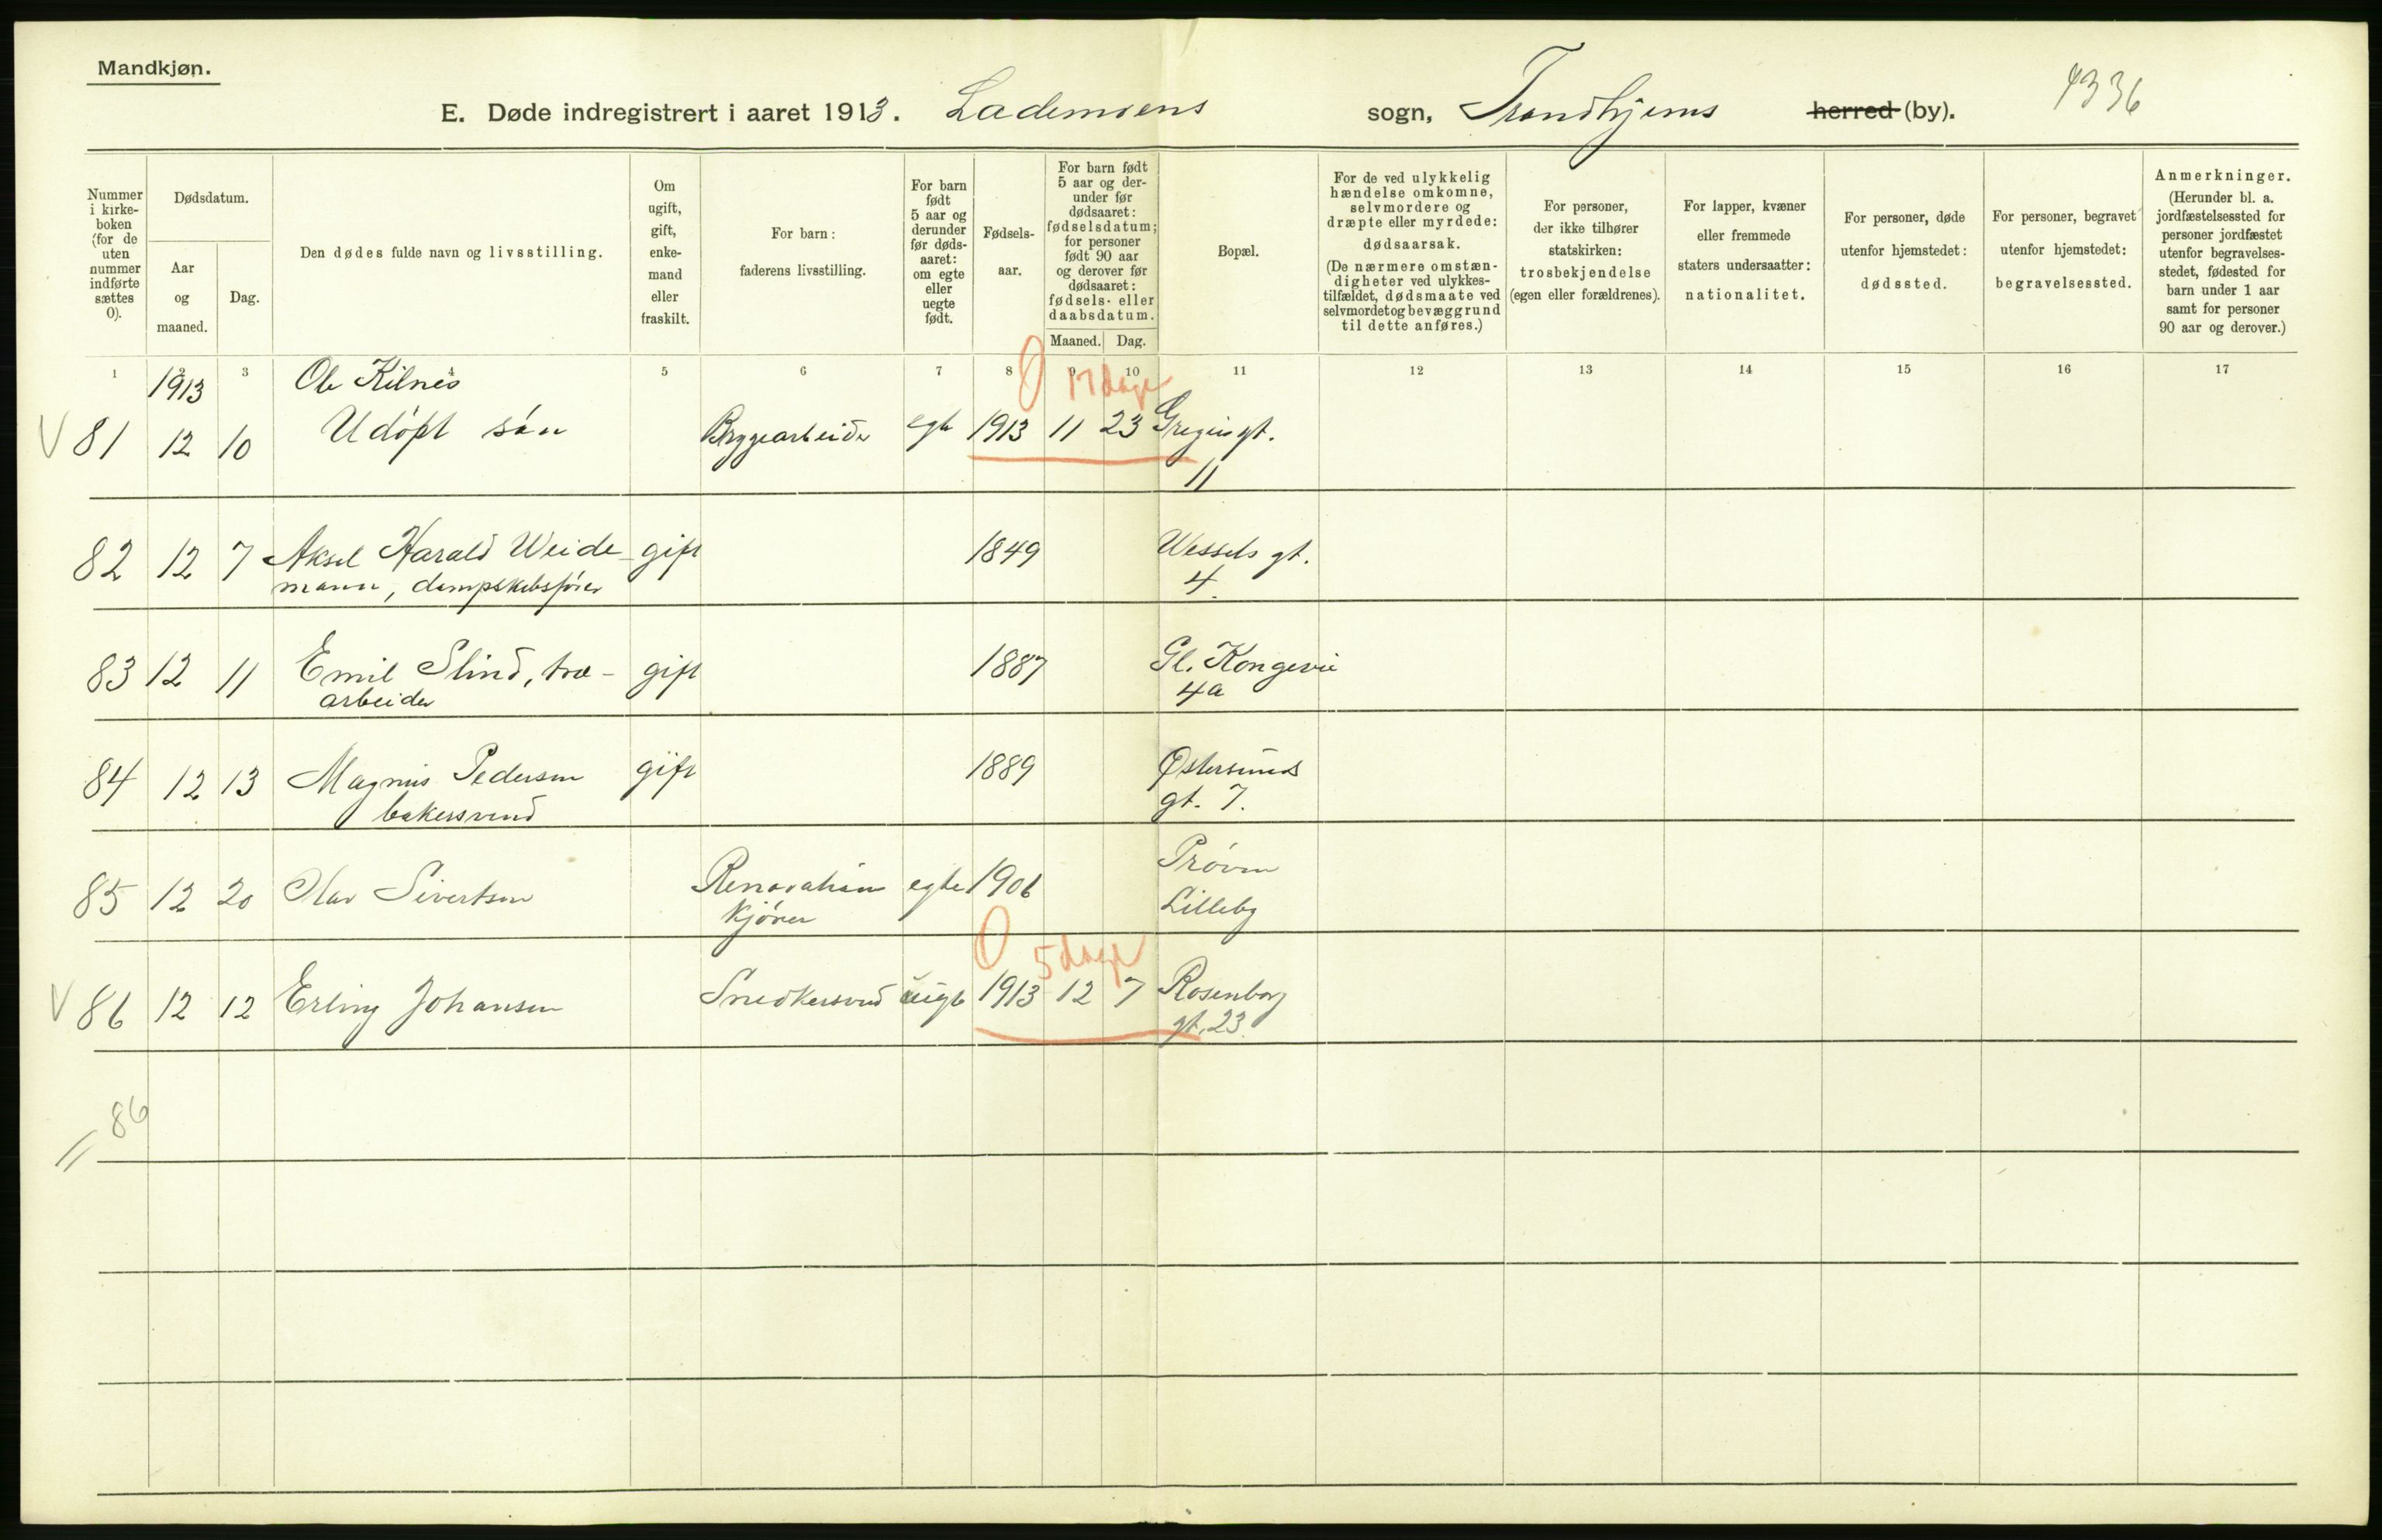 Mandkjøn.
E. Døde indregistrert i aaret 1913. Lademoens sogn, Trondhjems herred (by). 4336
Nummer i kirkeboken (for de uten nummer indførte sættes 0).
Dødsdatum.
Aar og maaned.
Dag.
Den dødes fulde navn og livsstilling.
Om ugift, gift, enkemand eller fraskilt.
For barn: faderens livsstilling.
For barn født 5 aar og derunder før dødsaaret: om egte eller uegte født.
Fødselsaar.
For barn født 5 aar og derunder før dødsaaret: fødselsdatum; for personer født 90 aar og derover før dødsaaret: fødsels- eller daabsdatum.
Maaned. Dag.
Bopæl.
For de ved ulykkelig hændelse omkomne, selvmordere og dræpte eller myrdede: dødsaarsak. (De nærmere omstændigheter ved ulykkestilfældet, dødsmaate ved selvmord et og bevæggrund til dette anføres.)
For personer, der ikke tilhører statskirken: trosbekjendelse (egen eller forældrenes).
For lapper, kvæner eller fremmede staters undersaatter: nationalitet.
For personer, døde utenfor hjemstedet: dødssted.
For personer, begravet utenfor hjemstedet: begravelsessted.
Anmerkninger. (Herunder bl. a. jordfæstelsessted for personer jordfæstet utenfor begravelsesstedet, fødested for barn under 1 aar samt for personer 90 aar og derover.)
1 2 3 4 5 6 7 8 9 10 11 12 13 14 15 16 17
1913 Ole Kilnes 0 17 dage
V 81 12 10 Udøpt søn Bryggearbeider egte 1913 11 23
11
82 12 7 Aksel Harald Weide- gift 1849 Wessels gt.
mann, dampskibsfører 4.
83 12 11 Emil Slind, træ- gift 1887 Gl. Kongevei
arbeider 4a
84 12 13 Magnus Pedersen gift 1889 Østersunds
bakersvend gt. 7.
85 12 20 Olav Sivertsen Renovations egte 1906 Prøven
kjører Lilleby
0 5 dage
V 86 12 12 Erling Johansen Snedkersvend uegte 1913 12 7 Rosenborg
gt. 23.
86